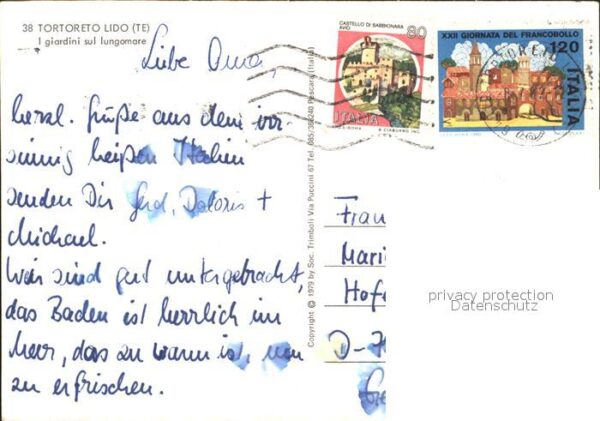 38 TORTORETO LIDO (TE)
I giardini sul lungomare
Liebe Oma,
herzl. Grüße aus dem irr-
sinnig heißen Italien
senden Dir Gerd, Doloris +
Michael.
Wir sind gut untergebracht,
das Baden ist herrlich im
Meer, das zu warm ist, um
zu erfrischen.
Copyright © 1979 by Soc. Trimboli Via Puccini 67 Tel. 085/ Pescara (Italia)
CASTELLO DI SABBIONARA
AVIO
80
ITALIA
XXII GIORNATA DEL FRANCOBOLLO
120
ITALIA
Frau
Mari
Hofe
D-7
privacy protection
Datenschutz